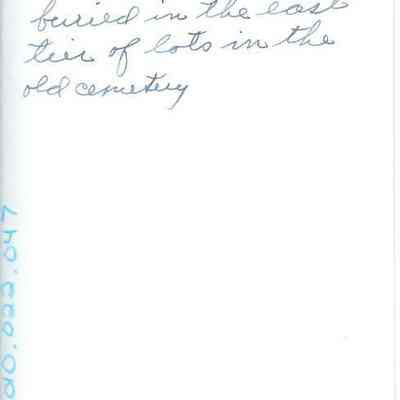 buried in the east
tier of lots in the
old cemetery